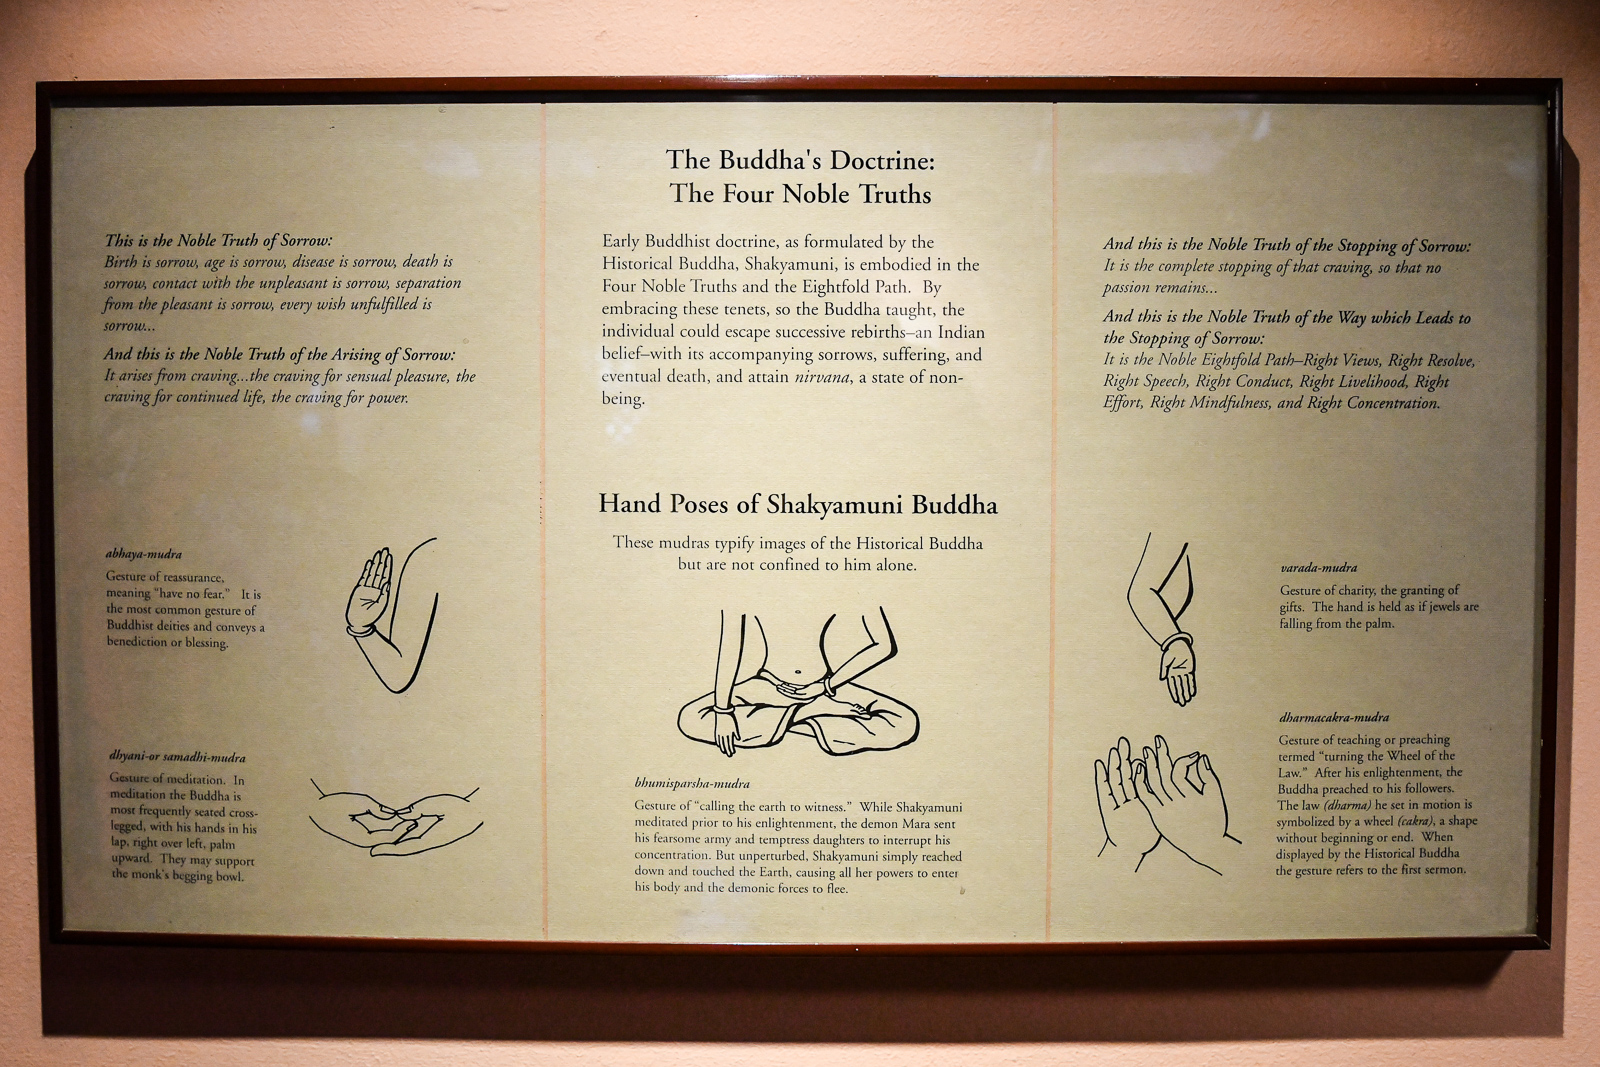 The Buddha's Doctrine:
The Four Noble Truths
This is the Noble Truth of Sorrow:
Birth is sorrow, age is sorrow, disease is sorrow, death is
sorrow, contact with the unpleasant is sorrow, separation
from the pleasant is sorrow, every wish unfulfilled is
sorrow...
And this is the Noble Truth of the Arising of Sorrow:
It arises from craving...the craving for sensual pleasure, the
craving for continued life, the craving for power.
Early Buddhist doctrine, as formulated by the
Historical Buddha, Shakyamuni, is embodied in the
Four Noble Truths and the Eightfold Path. By
embracing these tenets, so the Buddha taught, the
individual could escape successive rebirths–an Indian
belief–with its accompanying sorrows, suffering, and
eventual death, and attain nirvana, a state of non-
being.
And this is the Noble Truth of the Stopping of Sorrow:
It is the complete stopping of that craving, so that no
passion remains...
And this is the Noble Truth of the Way which Leads to
the Stopping of Sorrow:
It is the Noble Eightfold Path–Right Views, Right Resolve,
Right Speech, Right Conduct, Right Livelihood, Right
Effort, Right Mindfulness, and Right Concentration.
Hand Poses of Shakyamuni Buddha
These mudras typify images of the Historical Buddha
but are not confined to him alone.
abhaya-mudra
Gesture of reassurance,
meaning "have no fear." It is
the most common gesture of
Buddhist deities and conveys a
benediction or blessing.
dhyani-or samadhi-mudra
Gesture of meditation. In
meditation the Buddha is
most frequently seated cross-
legged, with his hands in his
lap, right over left, palm
upward. They may support
the monk's begging bowl.
bhumisparsha-mudra
Gesture of "calling the earth to witness." While Shakyamuni
meditated prior to his enlightenment, the demon Mara sent
his fearsome army and temptress daughters to interrupt his
concentration. But unperturbed, Shakyamuni simply reached
down and touched the Earth, causing all her powers to enter
his body and the demonic forces to flee.
varada-mudra
Gesture of charity, the granting of
gifts. The hand is held as if jewels are
falling from the palm.
dharmacakra-mudra
Gesture of teaching or preaching
termed "turning the Wheel of the
Law." After his enlightenment, the
Buddha preached to his followers.
The law (dharma) he set in motion is
symbolized by a wheel (cakra), a shape
without beginning or end. When
displayed by the Historical Buddha
the gesture refers to the first sermon.